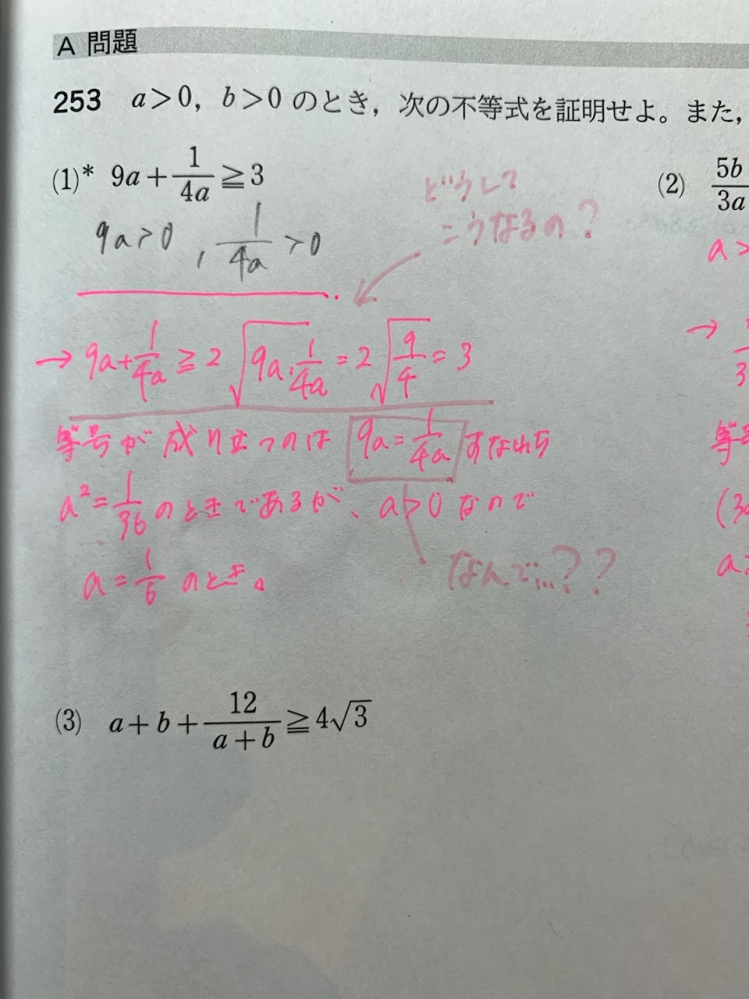 A 問題
253 a>0, b>0 のとき，次の不等式を証明せよ。また，
(1)* 9a+1/4a≧3
(2) 5b/3a
どうして
こうなるの？
9a>0 , 1/4a >0
a>
→ 9a+1/4a ≧ 2√(9a・1/4a) = 2√(9/4) = 3
→
等号が成り立つのは 9a=1/4a すなわち
a²=1/36 のときであるが、a>0 なので
(3a
a=1/6 のとき。
なんで…？？
(3) a+b+12/(a+b)≧4√3